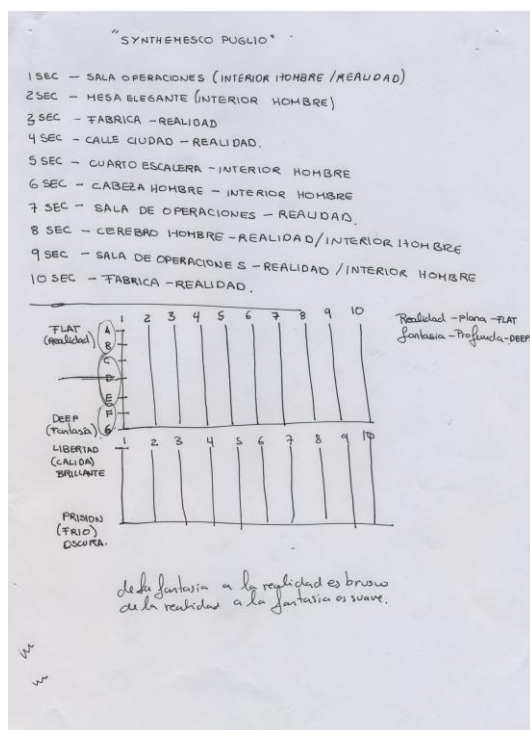 "SYNTHEMESCO PUGLIO"
1 SEC – SALA OPERACIONES (INTERIOR HOMBRE / REALIDAD)
2 SEC – MESA ELEGANTE (INTERIOR HOMBRE)
3 SEC – FABRICA – REALIDAD
4 SEC – CALLE CIUDAD – REALIDAD.
5 SEC – CUARTO ESCALERA – INTERIOR HOMBRE
6 SEC – CABEZA HOMBRE – INTERIOR HOMBRE
7 SEC – SALA DE OPERACIONES – REALIDAD.
8 SEC – CEREBRO HOMBRE – REALIDAD/INTERIOR HOMBRE
9 SEC – SALA DE OPERACIONES – REALIDAD / INTERIOR HOMBRE
10 SEC – FABRICA – REALIDAD.
1 2 3 4 5 6 7 8 9 10
FLAT
(Realidad)
A
B
C
D
E
F
G
DEEP
(Fantasía)
Realidad – plana – FLAT
fantasia – Profunda – DEEP
1 2 3 4 5 6 7 8 9 10
LIBERTAD
(CALIDA)
BRILLANTE
PRISION
(FRIO)
OSCURA.
de la fantasia a la realidad es brusco
de la realidad a la fantasia es suave.